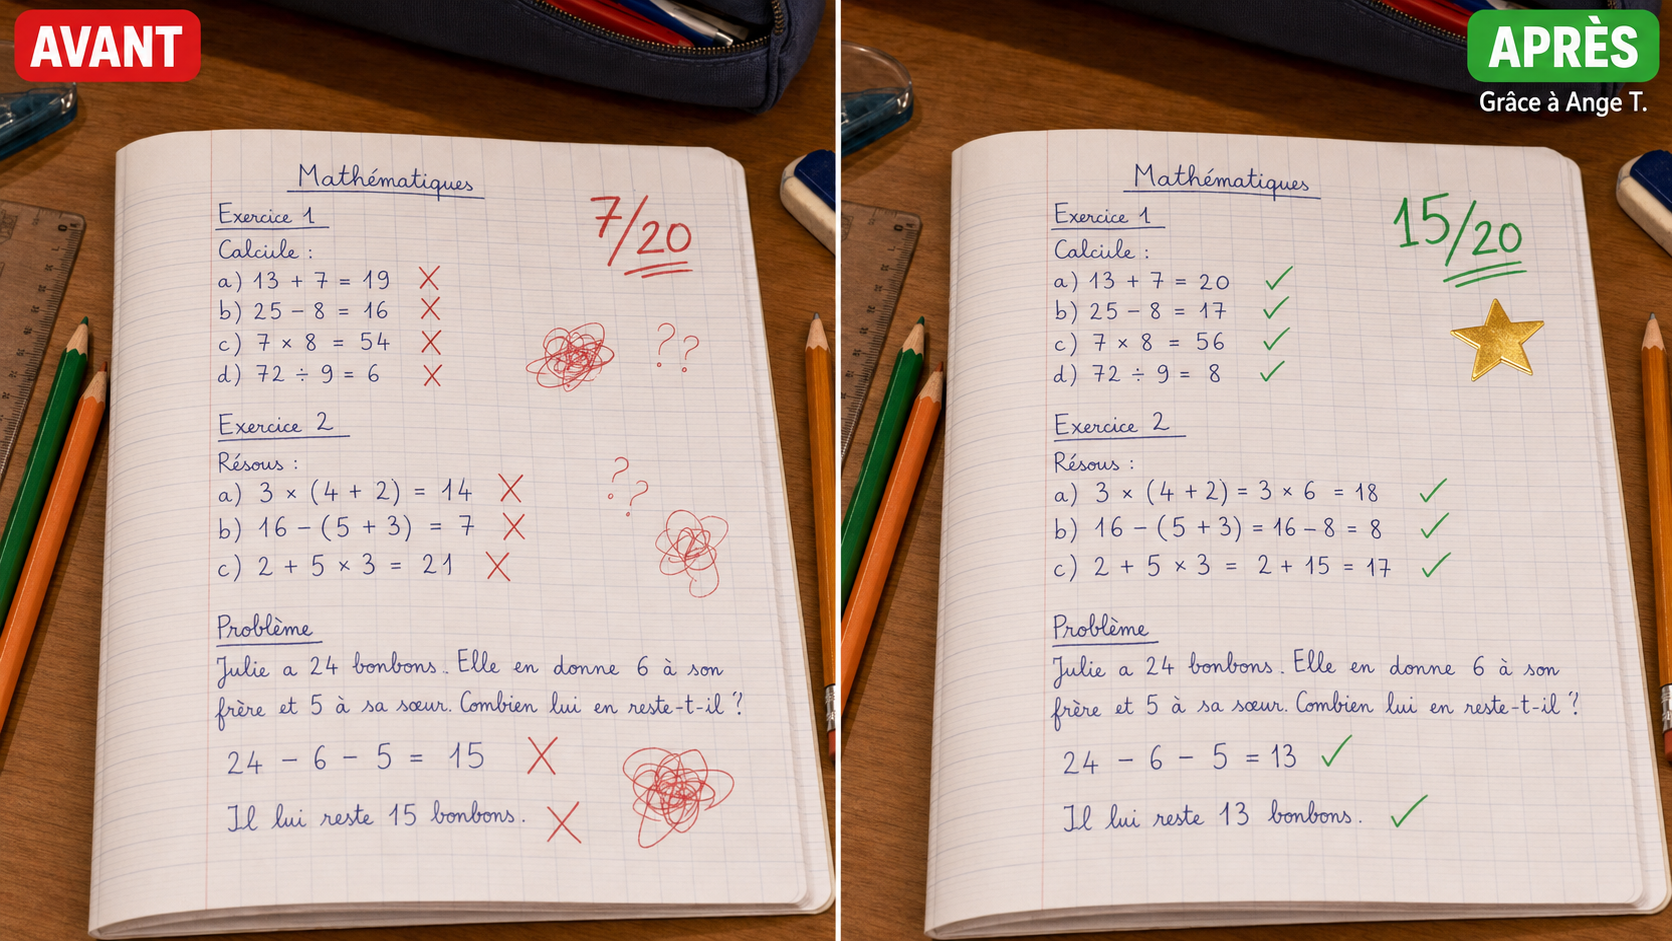 AVANT
Mathématiques
7/20
Exercice 1
Calcule :
a) 13 + 7 = 19
b) 25 - 8 = 16
c) 7 × 8 = 54
d) 72 ÷ 9 = 6
??
Exercice 2
Résous :
a) 3 × (4 + 2) = 14
b) 16 - (5 + 3) = 7
c) 2 + 5 × 3 = 21
??
Problème
Julie a 24 bonbons. Elle en donne 6 à son
frère et 5 à sa sœur. Combien lui en reste-t-il ?
24 - 6 - 5 = 15
Il lui reste 15 bonbons.
APRÈS
Grâce à Ange T.
Mathématiques
15/20
Exercice 1
Calcule :
a) 13 + 7 = 20
b) 25 - 8 = 17
c) 7 × 8 = 56
d) 72 ÷ 9 = 8
Exercice 2
Résous :
a) 3 × (4 + 2) = 3 × 6 = 18
b) 16 - (5 + 3) = 16 - 8 = 8
c) 2 + 5 × 3 = 2 + 15 = 17
Problème
Julie a 24 bonbons. Elle en donne 6 à son
frère et 5 à sa sœur. Combien lui en reste-t-il ?
24 - 6 - 5 = 13
Il lui reste 13 bonbons.